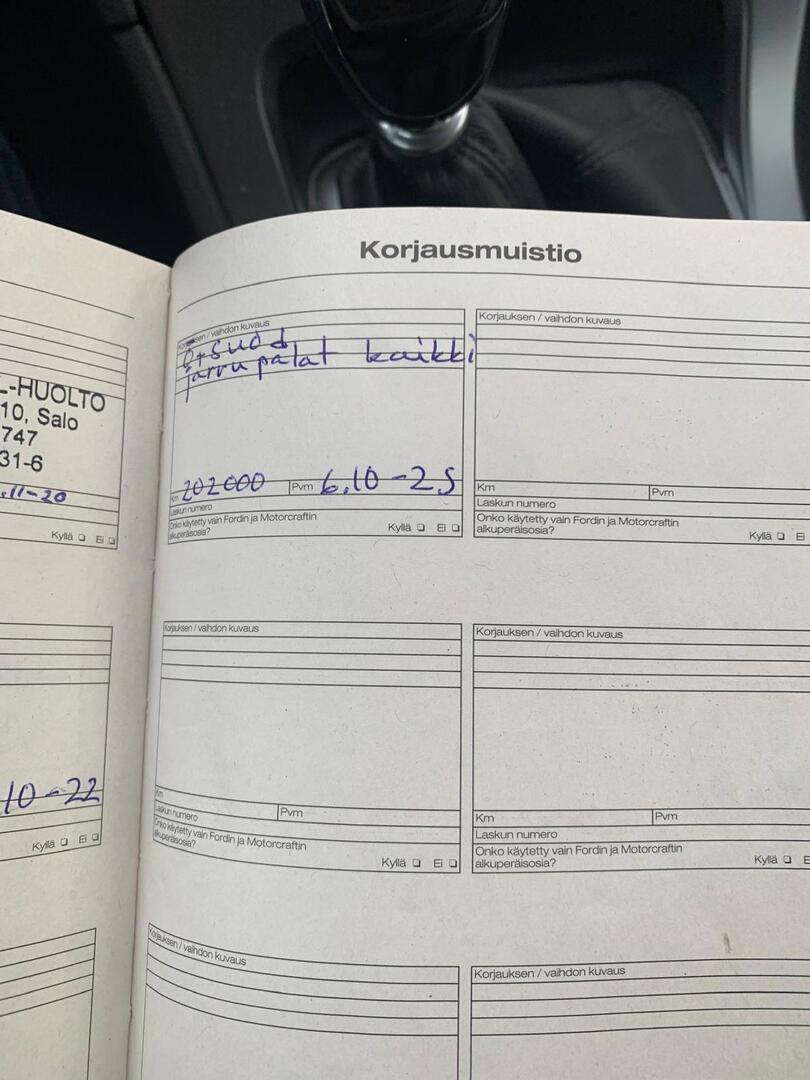 Korjausmuistio
L-HUOLTO
10, Salo
747
31-6
.11-20
Kyllä Ei
10-22
Kyllä Ei
Korjauksen / vaihdon kuvaus
jarrupalat kaikki
Km 202000 Pvm 6.10-25
Laskun numero
Onko käytetty vain Fordin ja Motorcraftin
alkuperäisosia? Kyllä Ei
Korjauksen / vaihdon kuvaus
Km Pvm
Laskun numero
Onko käytetty vain Fordin ja Motorcraftin
alkuperäisosia? Kyllä Ei
Korjauksen / vaihdon kuvaus
Km Pvm
Laskun numero
Onko käytetty vain Fordin ja Motorcraftin
alkuperäisosia? Kyllä Ei
Korjauksen / vaihdon kuvaus
Km Pvm
Laskun numero
Onko käytetty vain Fordin ja Motorcraftin
alkuperäisosia? Kyllä E
Korjauksen / vaihdon kuvaus
Korjauksen / vaihdon kuvaus